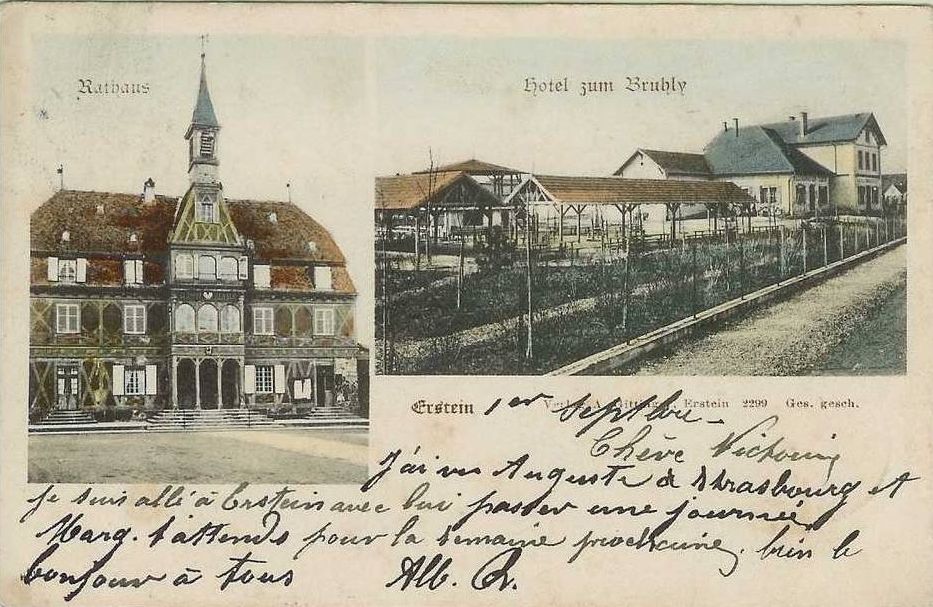 Rathaus
Hotel zum Bruhly
Erstein
Erstein 2299 Ges. gesch.
1er Septbre
Chère Victorine
J'ai vu Auguste à Strasbourg et
je suis allé à Erstein avec lui passer une journée
Marg. t'attends pour la semaine prochaine, bien le
bonjour à tous Alb.